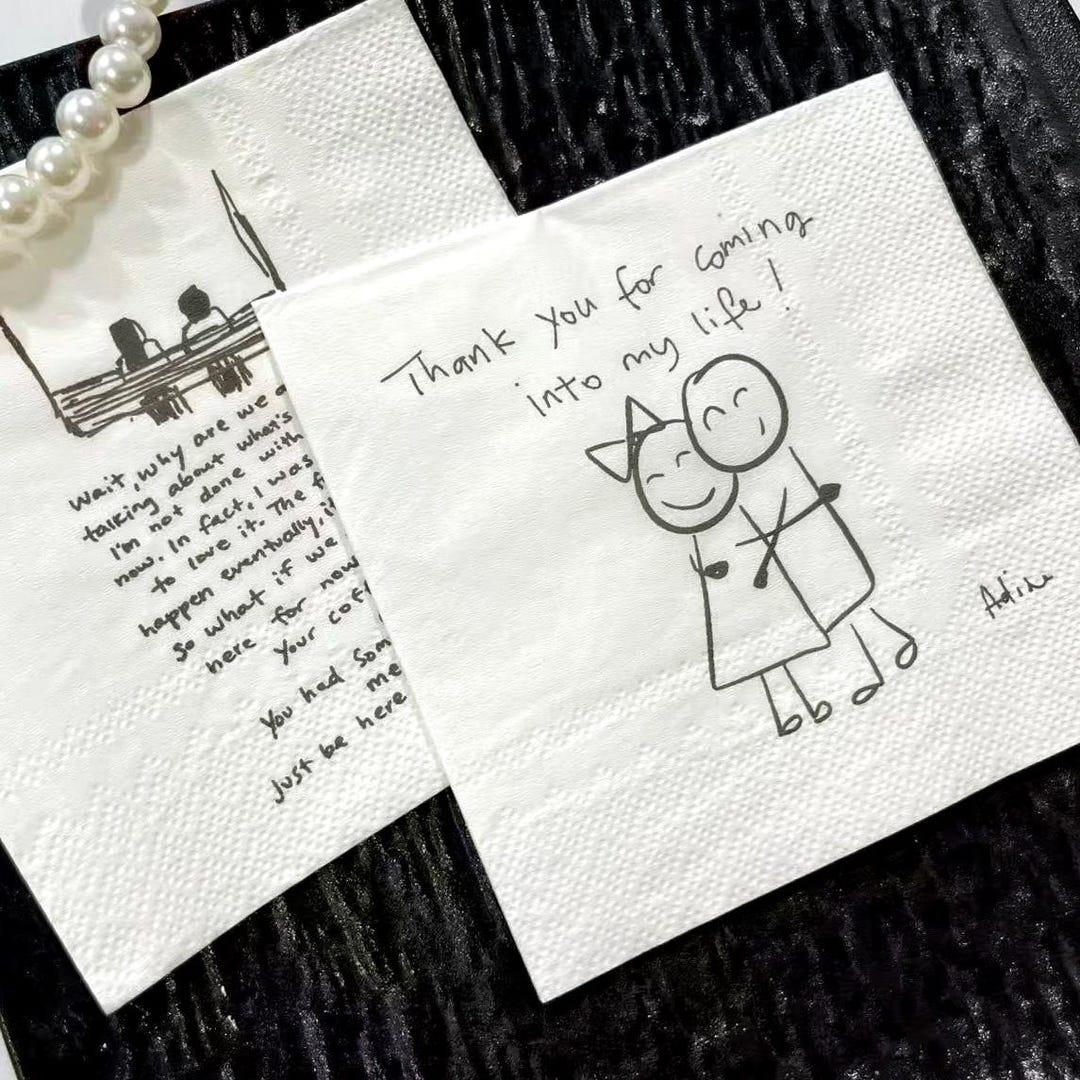 wait, why are we
talking about what's
I'm not done with
now. In fact, I was
to love it. The
happen eventually,
So what if we
here for now
your
You had
me
Just be here
Thank you for coming
into my life!